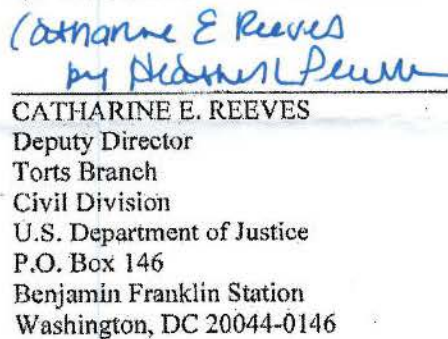 Catharine E Reeves
by Heather L Pearlman
CATHARINE E. REEVES
Deputy Director
Torts Branch
Civil Division
U.S. Department of Justice
P.O. Box 146
Benjamin Franklin Station
Washington, DC 20044-0146